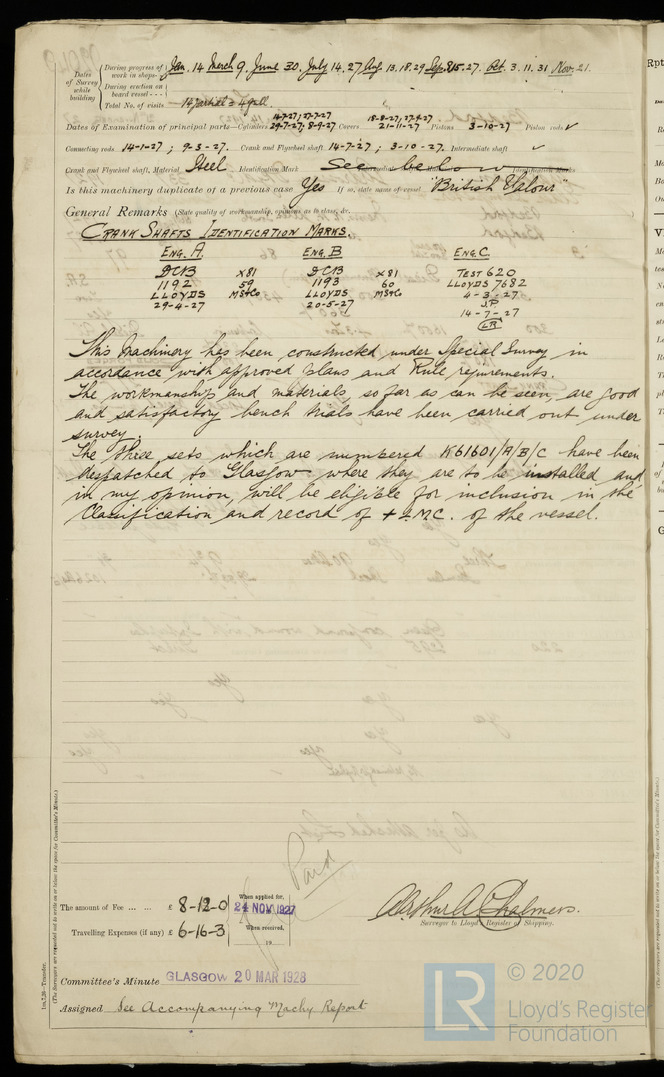 Dates of Survey while building
During progress of work in shops - Jan. 14 March 9, June 30, July 14. 27 Aug 13, 18. 29 Sep. 8. 15. 27. Oct. 3. 11. 31 Nov. 21.
During erection on board vessel - - -
Total No. of visits 14 partial & 4 full.
14-7-27, 27-7-27 18-8-27, 27-9-27
Dates of Examination of principal parts—Cylinders 29-7-27; 8-9-27 Covers 21-11-27 Pistons 3-10-27 Piston rods ✓
Connecting rods 14-1-27 ; 9-3-27. Crank and Flywheel shaft 14-7-27 ; 3-10-27. Intermediate shaft ✓
Crank and Flywheel shaft, Material Steel Identification Mark See below
Is this machinery duplicate of a previous case Yes If so, state name of vessel "British Valour"
General Remarks (State quality of workmanship, opinions as to class, &c.
CRANK SHAFTS IDENTIFICATION MARKS.
ENG. A. ENG. B ENG. C.
DCB X81 DCB X81 TEST 620
1192 59 1193 60 LLOYDS 7682
LLOYDS MS&Co LLOYDS MS&Co 4-3-27
29-4-27 20-5-27 J.P
14-7-27
LR
This Machinery has been constructed under Special Survey in
accordance with approved plans and Rule requirements.
The workmanship and materials, so far as can be seen, are good
and satisfactory bench trials have been carried out under
survey.
The three sets which are numbered K61601/A/B/C have been
despatched to Glasgow where they are to be installed and
in my opinion, will be eligible for inclusion in the
Classification and record of + L.M.C. of the vessel.
Paid
The amount of Fee ... ... £ 8-12-0 When applied for, 24 NOV 1927
Travelling Expenses (if any) £ 6-16-3 When received, 19
Arthur A. Chalmers.
Surveyor to Lloyd's Register of Shipping.
Committee's Minute GLASGOW 20 MAR 1928
Assigned See Accompanying Machy Report
(The Surveyors are requested not to write on or below the space for Committee's Minute.)
© 2020
LR
Lloyd's Register
Foundation